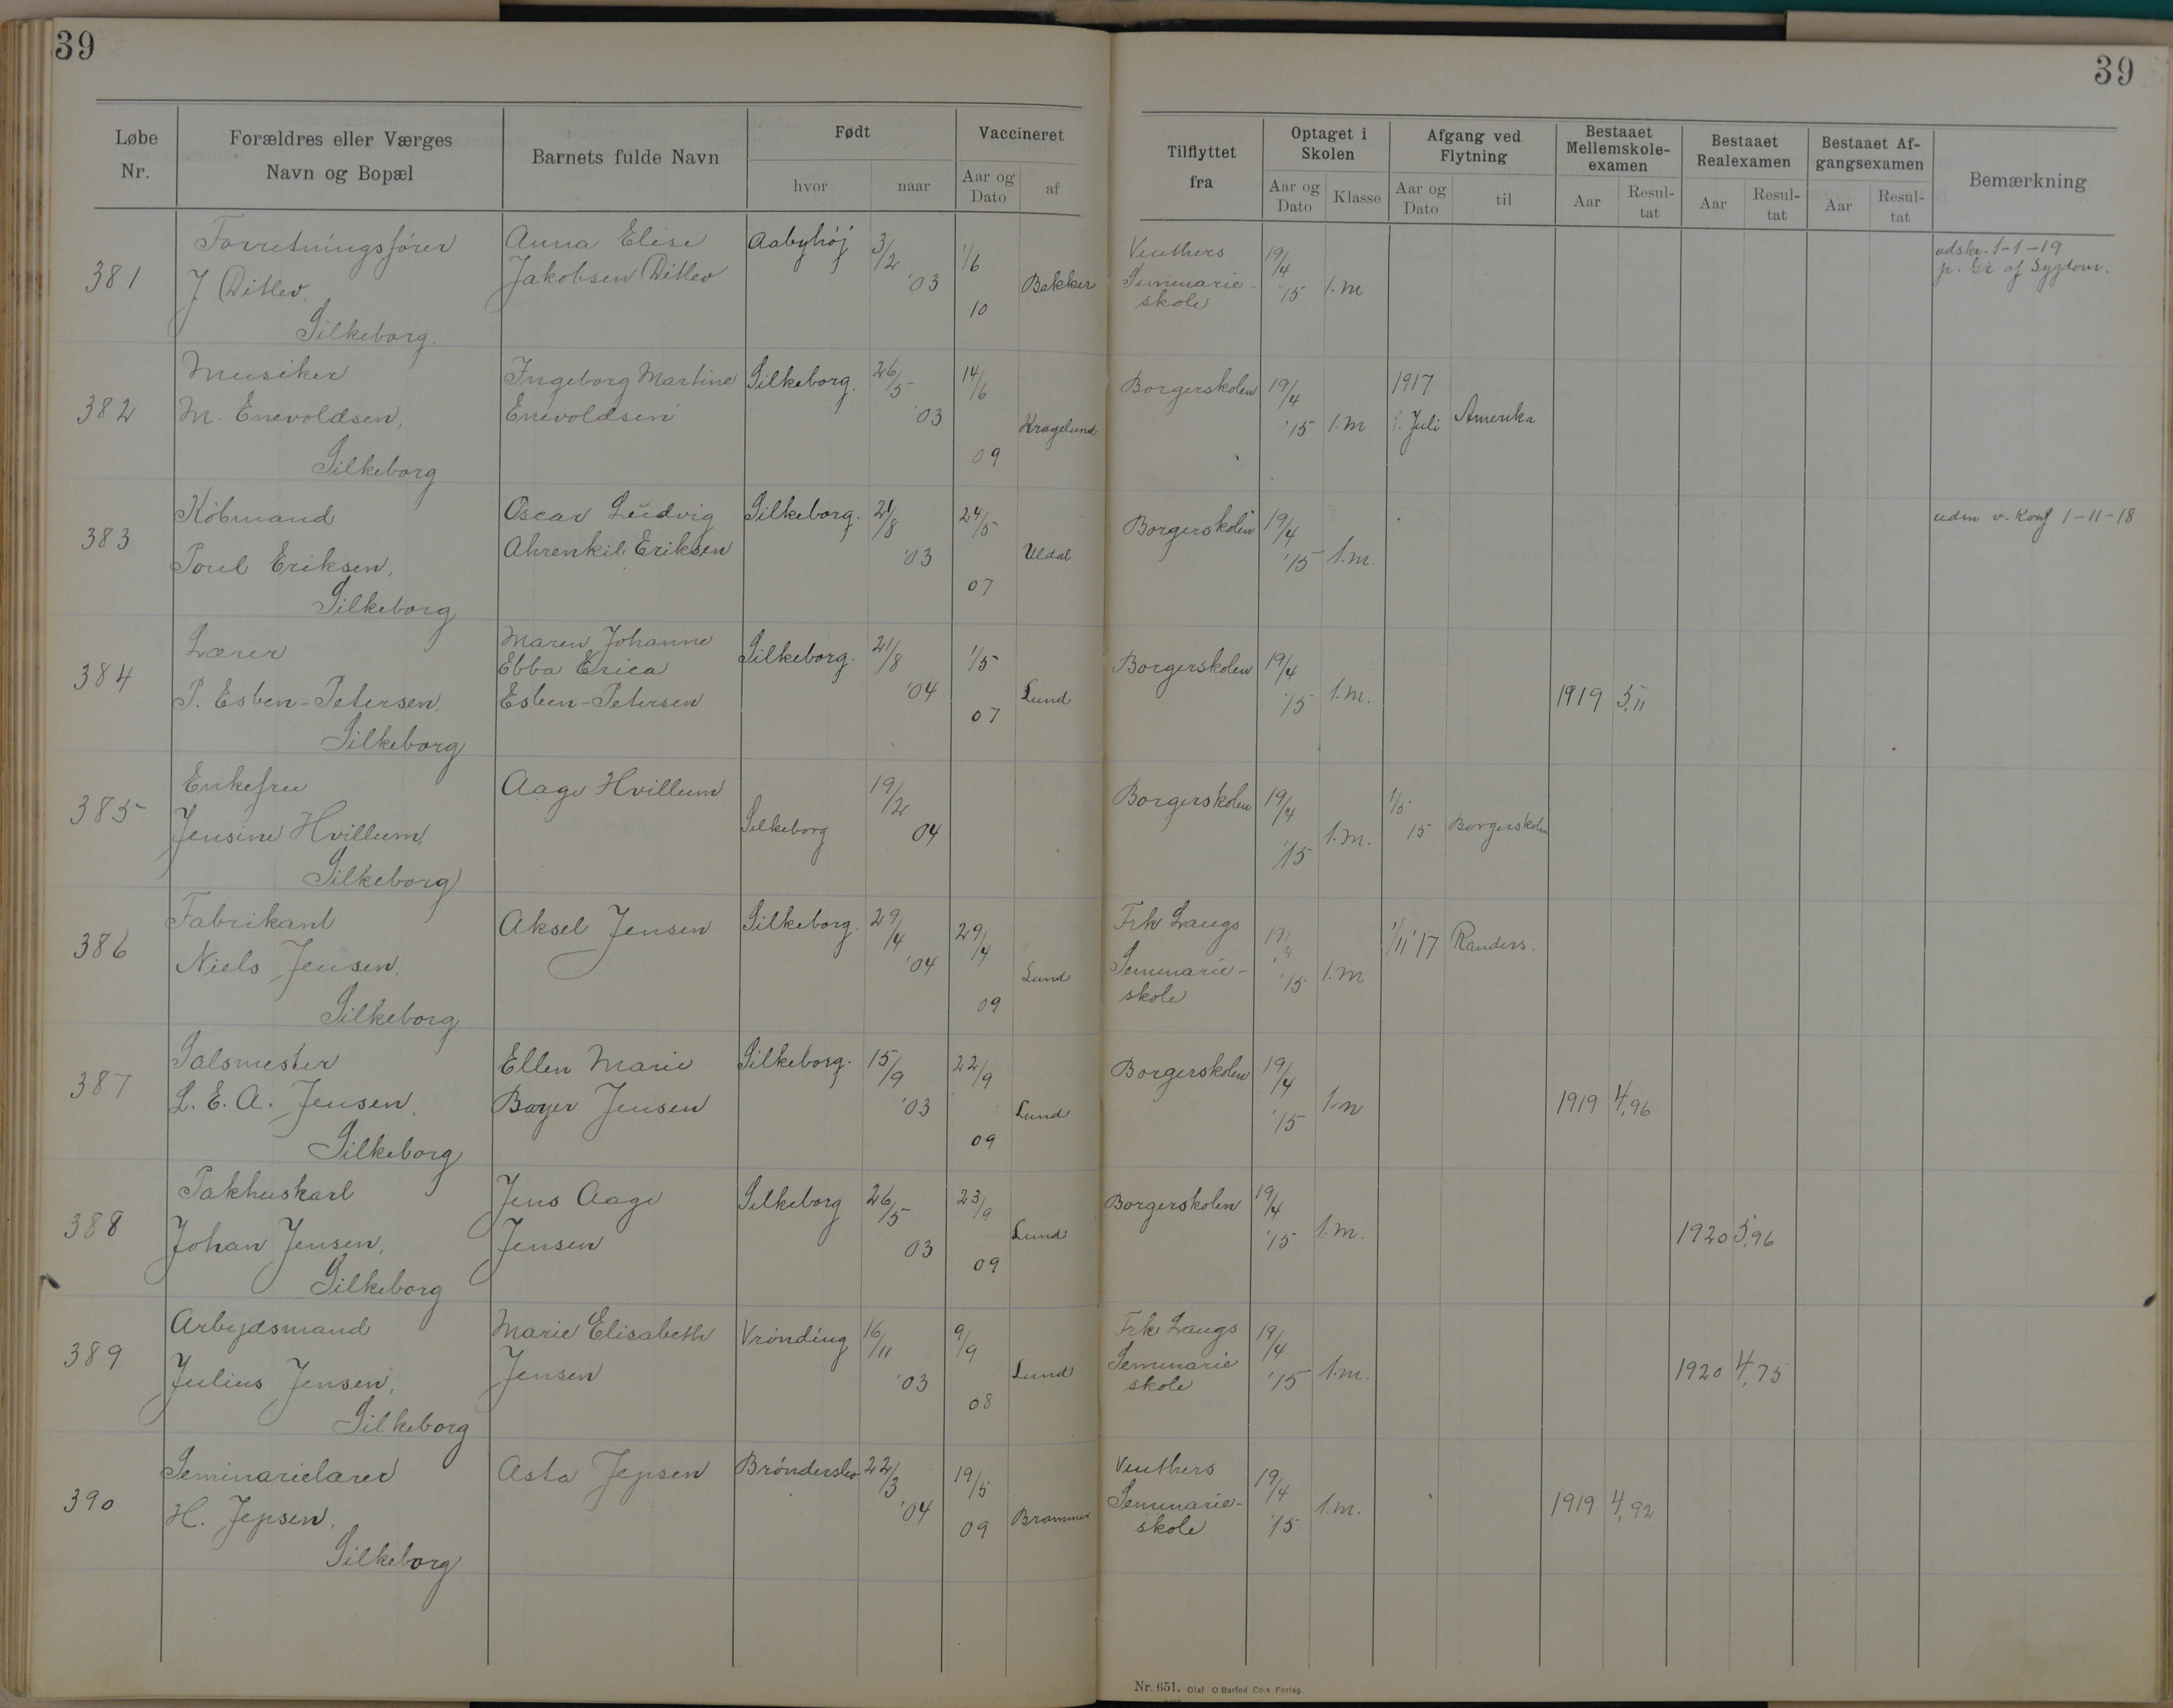 39
39
Løbe Nr.
Forældres eller Værges Navn og Bopæl
Barnets fulde Navn
Født
hvor
naar
Vaccineret
Aar og Dato
af
Tilflyttet fra
Optaget i Skolen
Aar og Dato
Klasse
Afgang ved Flytning
Aar og Dato
til
Bestaaet Mellemskole-examen
Aar
Resul-tat
Bestaaet Realexamen
Aar
Resul-tat
Bestaaet Af-gangsexamen
Aar
Resul-tat
Bemærkning
381
Forretningsfører
J Ditlev.
Silkeborg.
Anna Elise
Jakobsen Ditlev
Aabyhøj
3/2 '03
1/6 10
Bekker
Seminarie-
skole
19/4 '15
1.m
udskr. 1-1-19
p. Gr af Sygdom.
382
Musiker
M. Enevoldsen,
Silkeborg
Ingeborg Martine
Enevoldsen
Silkeborg.
26/5 '03
14/6 09
Kragelund
Borgerskolen
19/4 '15
1.m
1917
1. Juli
Amerika
383
Købmand
Poul Eriksen,
Silkeborg
Oscar Ludvig
Ahrenkil Eriksen
Silkeborg.
21/8 '03
24/5 07
Uldal
Borgerskolen
19/4 '15
1.m.
udm v. Konf 1-11-18
384
Lærer
P. Esben-Petersen,
Silkeborg
Maren Johanne
Ebba Erica
Esben-Petersen
Silkeborg.
21/8 '04
1/5 07
Lund
Borgerskolen
19/4 '15
1.m.
1919
5,11
385
Enkefru
Jensine Hvillum,
Silkeborg
Aage Hvillum
Silkeborg
19/2 04
Borgerskolen
19/4 '15
1.m.
1/5 15
Borgerskolen
386
Fabrikant
Niels Jensen,
Silkeborg
Aksel Jensen
Silkeborg.
29/4 '04
29/4 09
Lund
Frk Langs
Seminarie-
skole
19/4 '15
1.m
1/11 '17
Randers.
387
Salsmester
L. E. A. Jensen,
Silkeborg
Ellen Marie
Bayer Jensen
Silkeborg.
15/9 '03
22/9 09
Lund
Borgerskolen
19/4 '15
1.m
1919
4,96
388
Pakhuskarl
Johan Jensen,
Silkeborg
Jens Aage
Jensen
Silkeborg
26/5 03
23/9 09
Lund
Borgerskolen
19/4 '15
1.m.
1920
5,96
389
Arbejdsmand
Julius Jensen,
Silkeborg
Marie Elisabeth
Jensen
Vrønding
16/11 '03
9/9 08
Lund
Frk Langs
Seminarie
skole
19/4 '15
1.m.
1920
4,75
390
Seminarielærer
H. Jepsen,
Silkeborg
Asta Jepsen
Brønderslev
22/3 '04
19/5 09
Brammer
Seminarie-
skole
19/4 '15
1.m.
1919
4,92
Nr. 651. Olaf O Barfod Co.s Forlag.